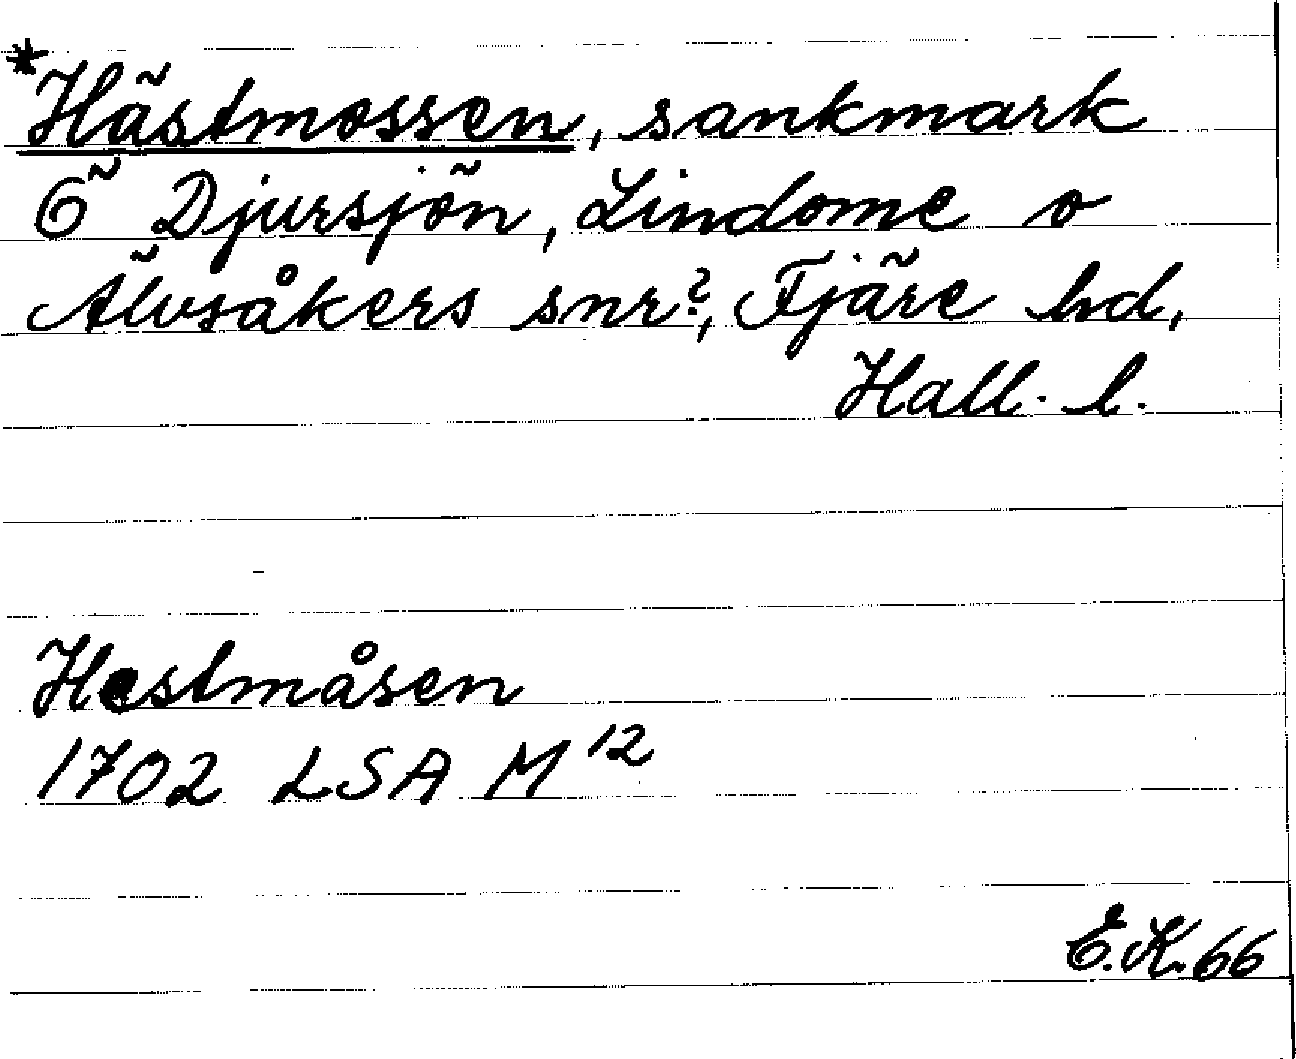 *Hästmossen, sankmark
Ö Djursjön, Lindome o
Älvsåkers snr?, Fjäre hd,
Hall. l.
Hestmåsen
1702 LSA M 12
E.K. 66